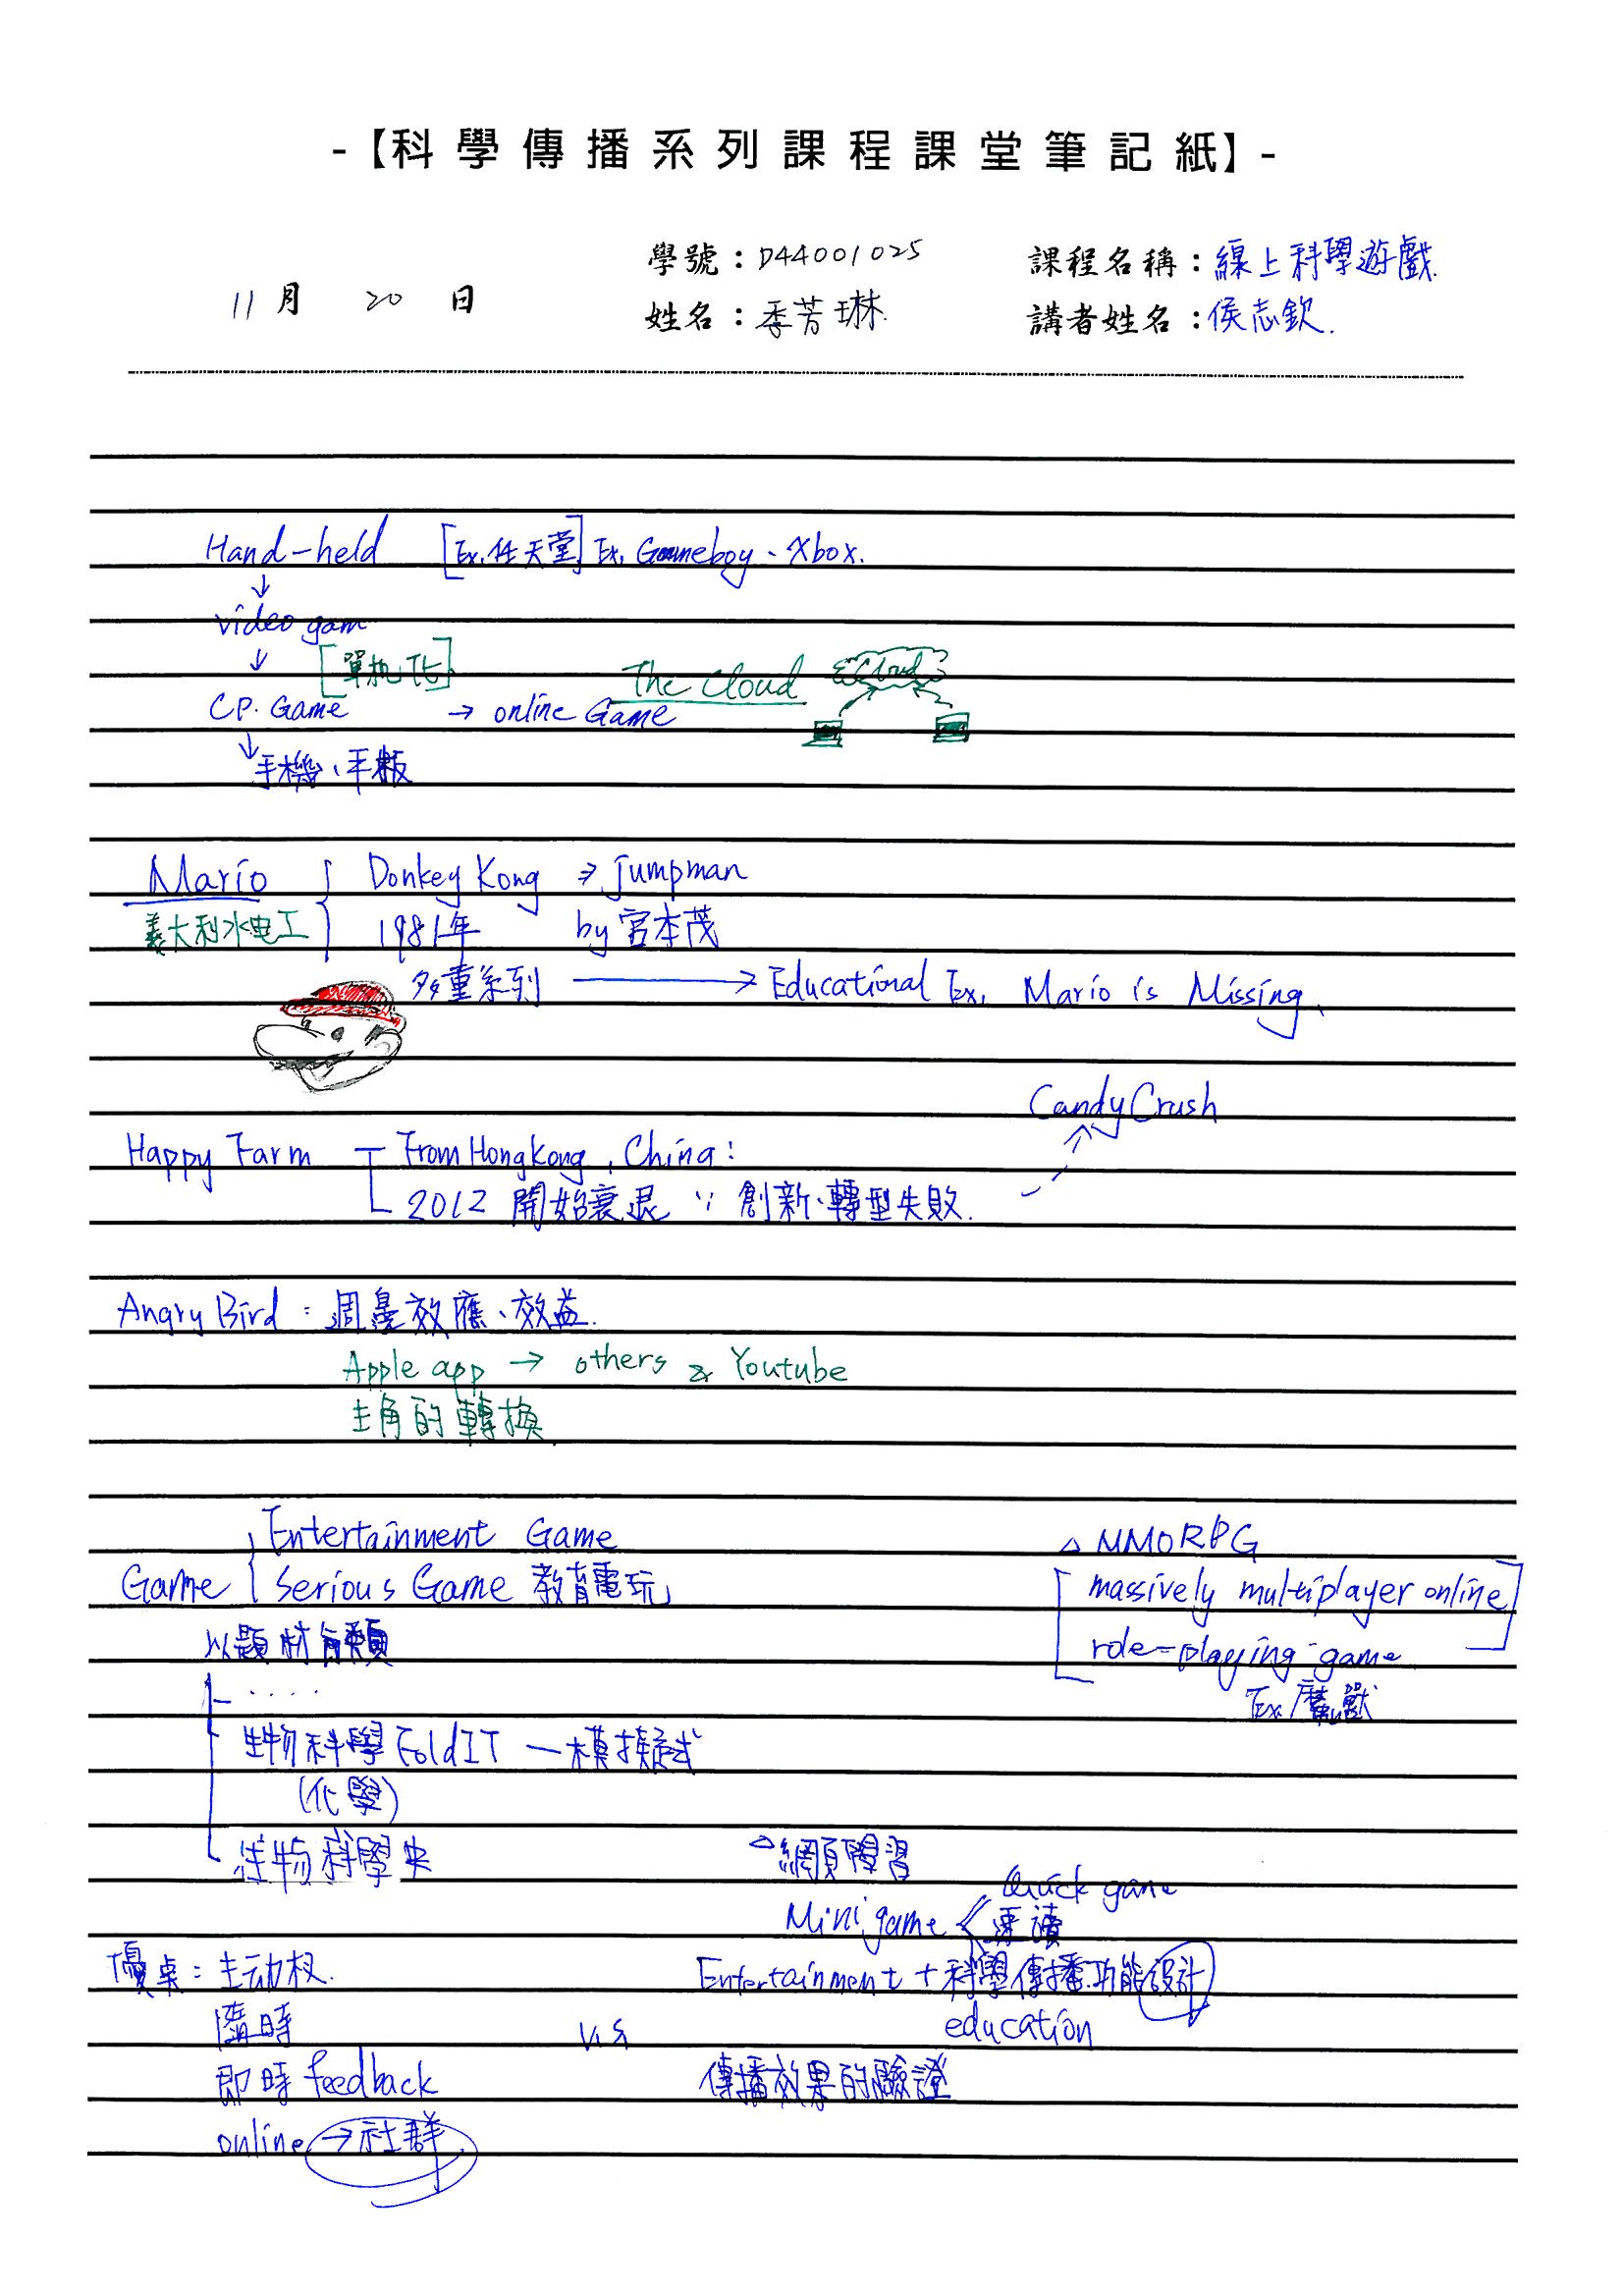 -【科學傳播系列課程課堂筆記紙】-
學號：D44001025 課程名稱：線上科學遊戲.
11月 20 日 姓名：季芳琳. 講者姓名：侯志欽.
Hand-held [Ex.任天堂] Ex. Gameboy、Xbox.
↓
video gam
↓ [單机TE] The Cloud Cloud
CP. Game → online Game
↓手機、平板
Mario { Donkey Kong ⇒ jumpman
義大利水电工 1981年 by 宮本茂
多重系列 → Educational Ex. Mario is Missing.
Candy Crush
Happy Farm From HongKong, China:
2012 開始衰退 ∵ 創新、轉型失敗.
Angry Bird : 週邊效應、效益.
Apple app → others & Youtube
主角的轉換
Entertainment Game △ MMORPG
Game { Serious Game 教育電玩 [massively multiplayer online
以題材 role-playing game]
..... Ex. 魔獸
生物科學 FoldIT — 模擬式
(化學)
生物科學史 △網頁學習
Quick game
Mini game < 速讀
優桌: 主动权. Entertainment + 科學傳播.功能設計
隨時 v.s education
即時 feedback 傳播效果的驗證
online → 社群.